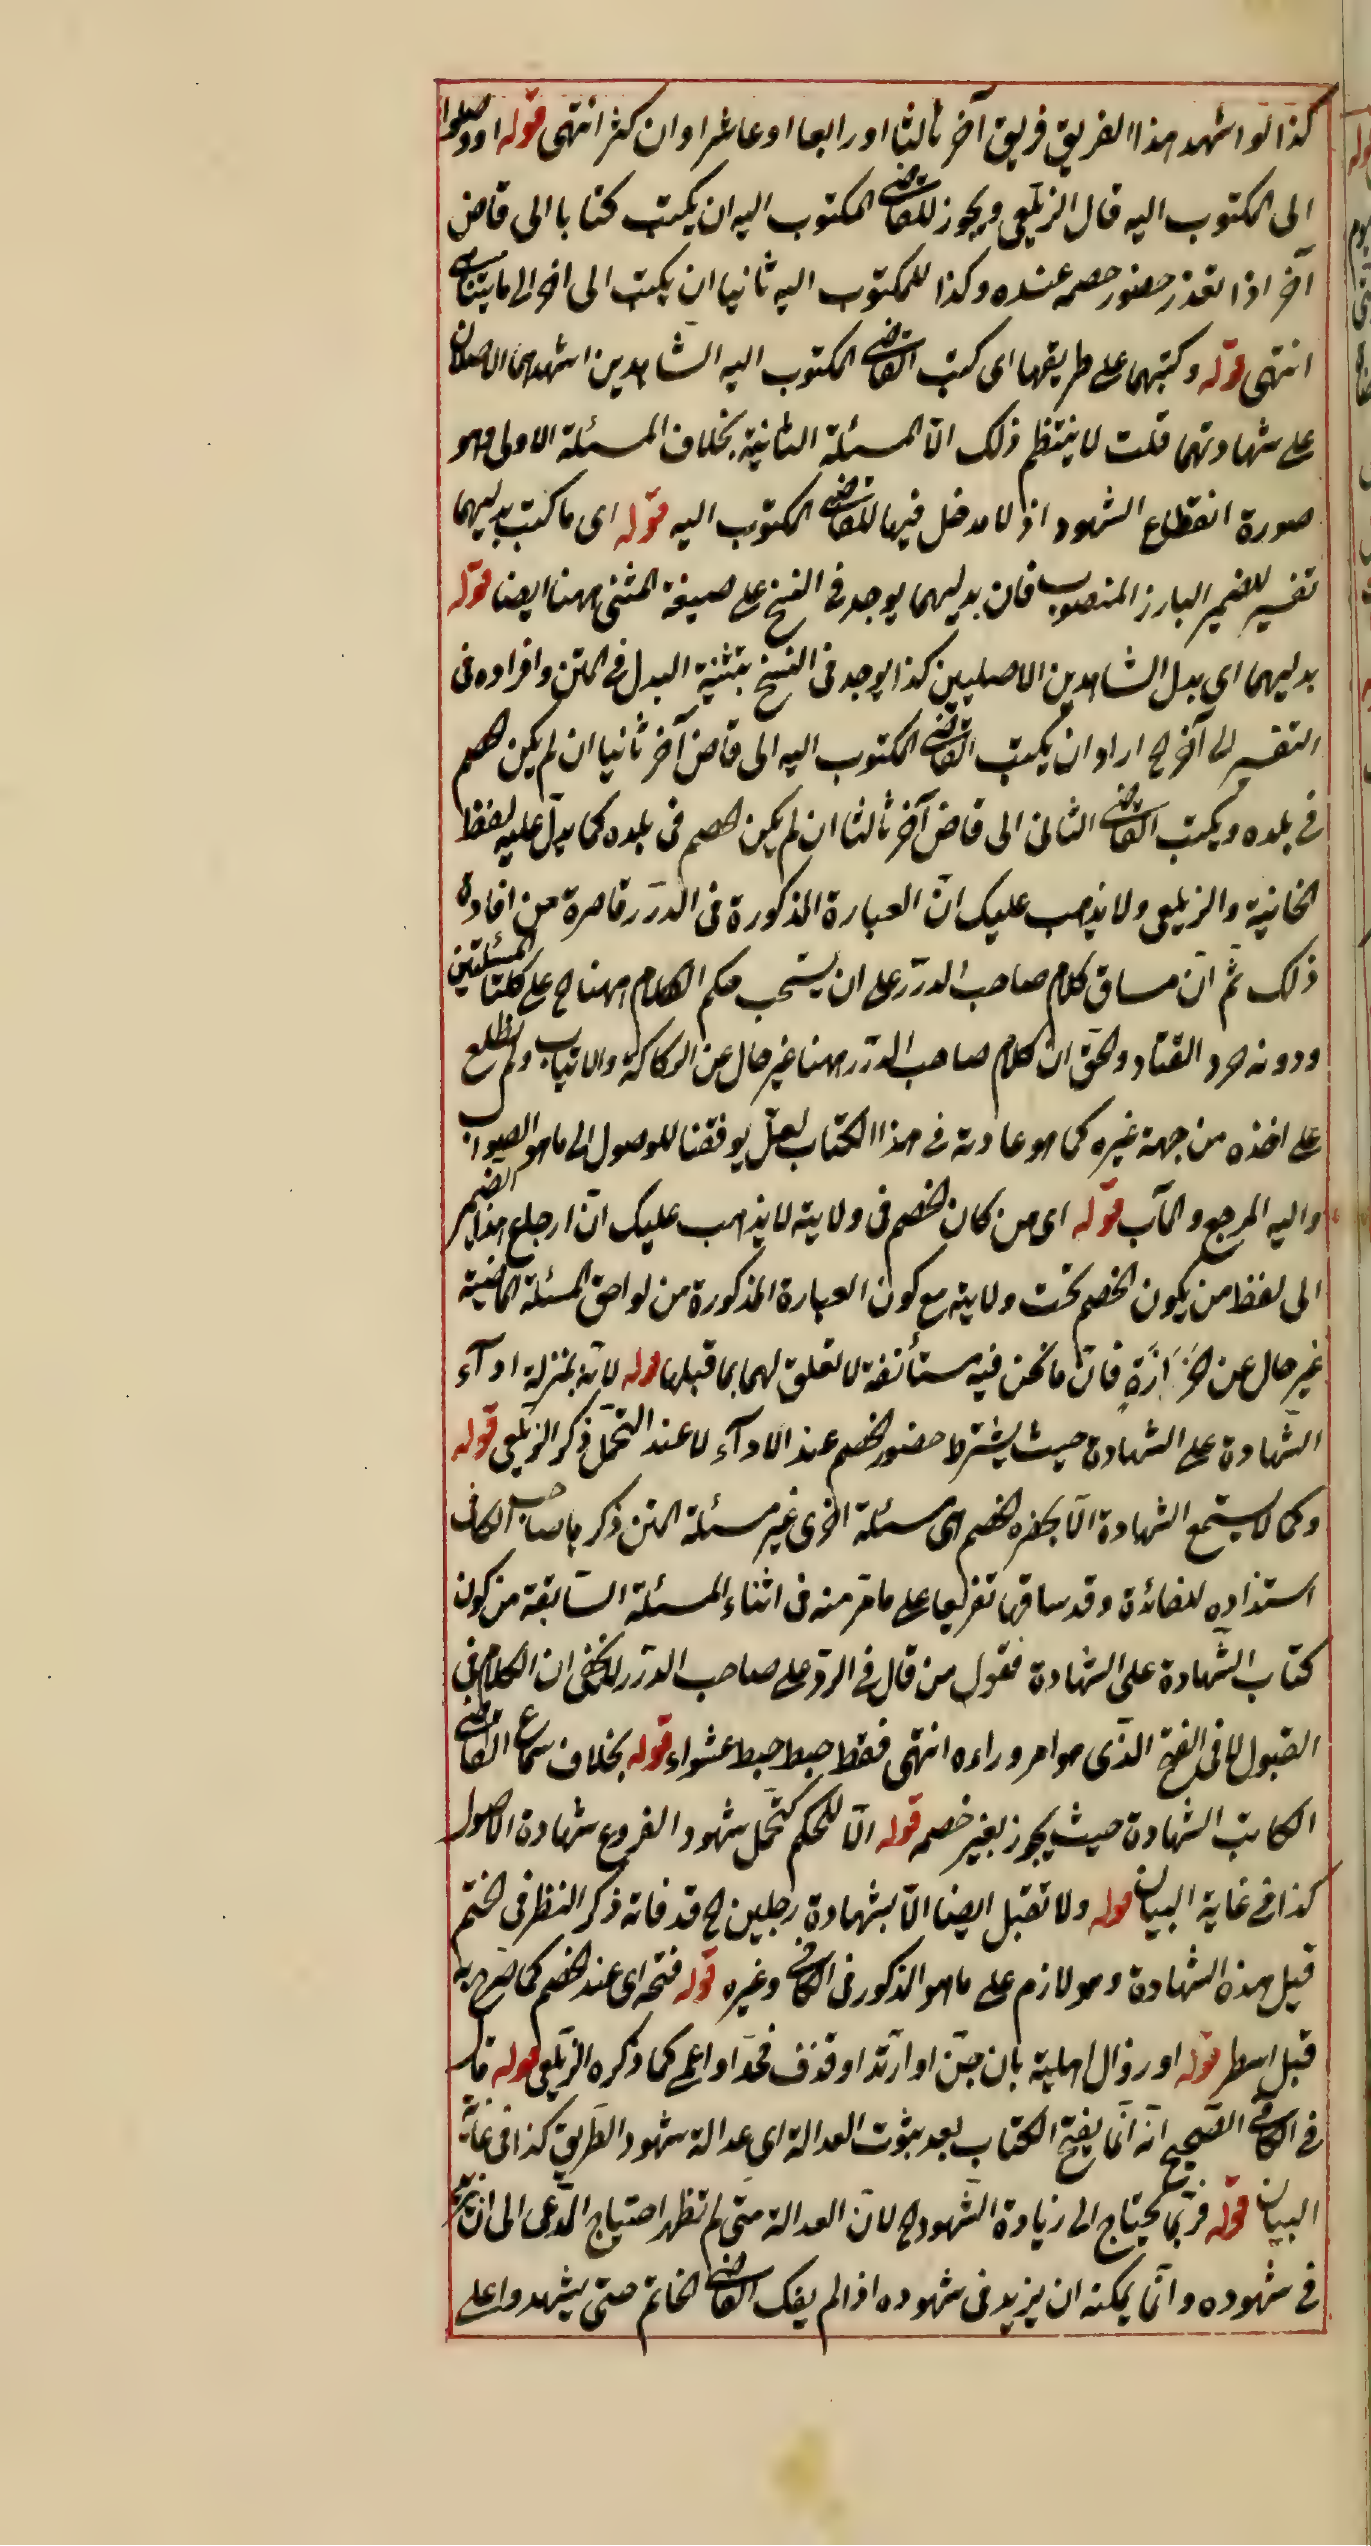 كذا لو اشهد هذا الفريق فريق آخر ثالثا او رابعا او عاشرا وان كثر انتهى قوله او وصلوا
الى المكتوب اليه قال الزيلعى ويجوز للقاضى المكتوب اليه ان يكتب كتابا الى قاض
آخر اذا تعذر حضور خصمه عنده وكذا للمكتوب اليه ثانيا ان يكتب الى آخر الى ما يتناهى
انتهى قوله وكتبهما على طريقها اى كتب القاضى المكتوب اليه الشاهدين اشهدهما الاصلان
على شهادتهما قلت لا ينتظم ذلك الّا المسئلة الثانية بخلاف المسئلة الاولى وهو
صورة انقطاع الشهود اذ لا مدخل فيها للقاضى المكتوب اليه قوله اى ما كتب بدليهما
تفسير للضمير البارز المنصوب فان بدليهما يوجد فى النسخ على صيغة المثنى ههنا ايضا قوله
بدليهما اى بدل الشاهدين الاصليين كذا يوجد فى النسخ بتثنية البدل فى المتن وافراده فى
التفسير الى آخره ح اراد ان يكتب القاضى المكتوب اليه الى قاض آخر ثانيا ان لم يكن الخصم
فى بلده ويكتب القاضى الثانى الى قاض آخر ثالثا ان لم يكن الخصم فى بلده كما يدلّ عليه لفظ
الخانية والزيلعى ولا يذهب عليك انّ العبارة المذكورة فى الدرر قاصرة من افادة
ذلك ثم انّ مساق كلام صاحب الدرر على ان يستحب حكم الكلام ههنا ح على كلتا المسئلتين
ودونه خرد القتاد والحق ان كلام صاحب الدرر ههنا غير خال عن الركاكة والارتياب ولم نطلع
على اخذه من جهة غيره كما هو عادته فى هذا الكتاب لعلّ يوفقنا للوصول الى ما هو الصواب
واليه المرجع والمآب قوله اى من كان الخصم فى ولايته لا يذهب عليك انّ ارجاع هذا الضمير
الى لفظ من يكون الخصم تحت ولايته مع كون العبارة المذكورة من لواحق المسئلة الماضية
غير خال عن حزازة فانّ ما نحن فيه مستأنفة لا تعلق لهما بما قبلها قوله لانّه بمنزلة ادآء
الشهادة على الشهادة حيث يشترط حضور الخصم عند الادآء لا عند التحمّل ذكر الزيلعى قوله
وكما لا يستمع الشهادة الّا بحضره الخصم اى مسئلة اخرى غير مسئلة المتن ذكرها صاحب الكافى
استزاده للفائدة وقد ساقها تفريعا على ما مر منه فى اثناء المسئلة السّابقة من كون
كتاب الشّهادة على الشهادة فقول من قال فى الردّ على صاحب الدرر لا يخفى ان الكلام فى
القبول لا فى الفتح الّذى هو امر وراءه انتهى فقط خبط خبط عشواء قوله بخلاف سماع القاضى
الكاتب الشهادة حيث يجوز بغير خصمه قوله الّا للحكم كتحمّل شهود الفروع شهادة الاصول
كذا فى غاية البيان قوله ولا تقبل ايضا الّا بشهادة رجلين ح قد فاته ذكر النظر فى الختم
قبل هذه الشهادة وهو لازم على ما هو المذكور فى الكافى وغيره قوله فتحه اى عند الخصم كما صرّح به
قبل اسطر قوله او زوال اهليته بان جنّ او ارتدّ او قذف فحدّ او اعمى كما ذكره الزيلعى قوله قال
فى الكافى الصّحيح انّه انّما يفتح الكتاب بعد ثبوت العدالة اى عدالة شهود الطريق كذا فى غاية
البيان قوله فربّما يحتاج الى زيادة الشّهود ح لانّ العدالة متى لم تظهر احتياج المدّعى الى ان يزيد
فى شهوده وانّما يمكنه ان يزيد فى شهوده اذا لم يفك القاضى الخاتم حتى يشهدوا على